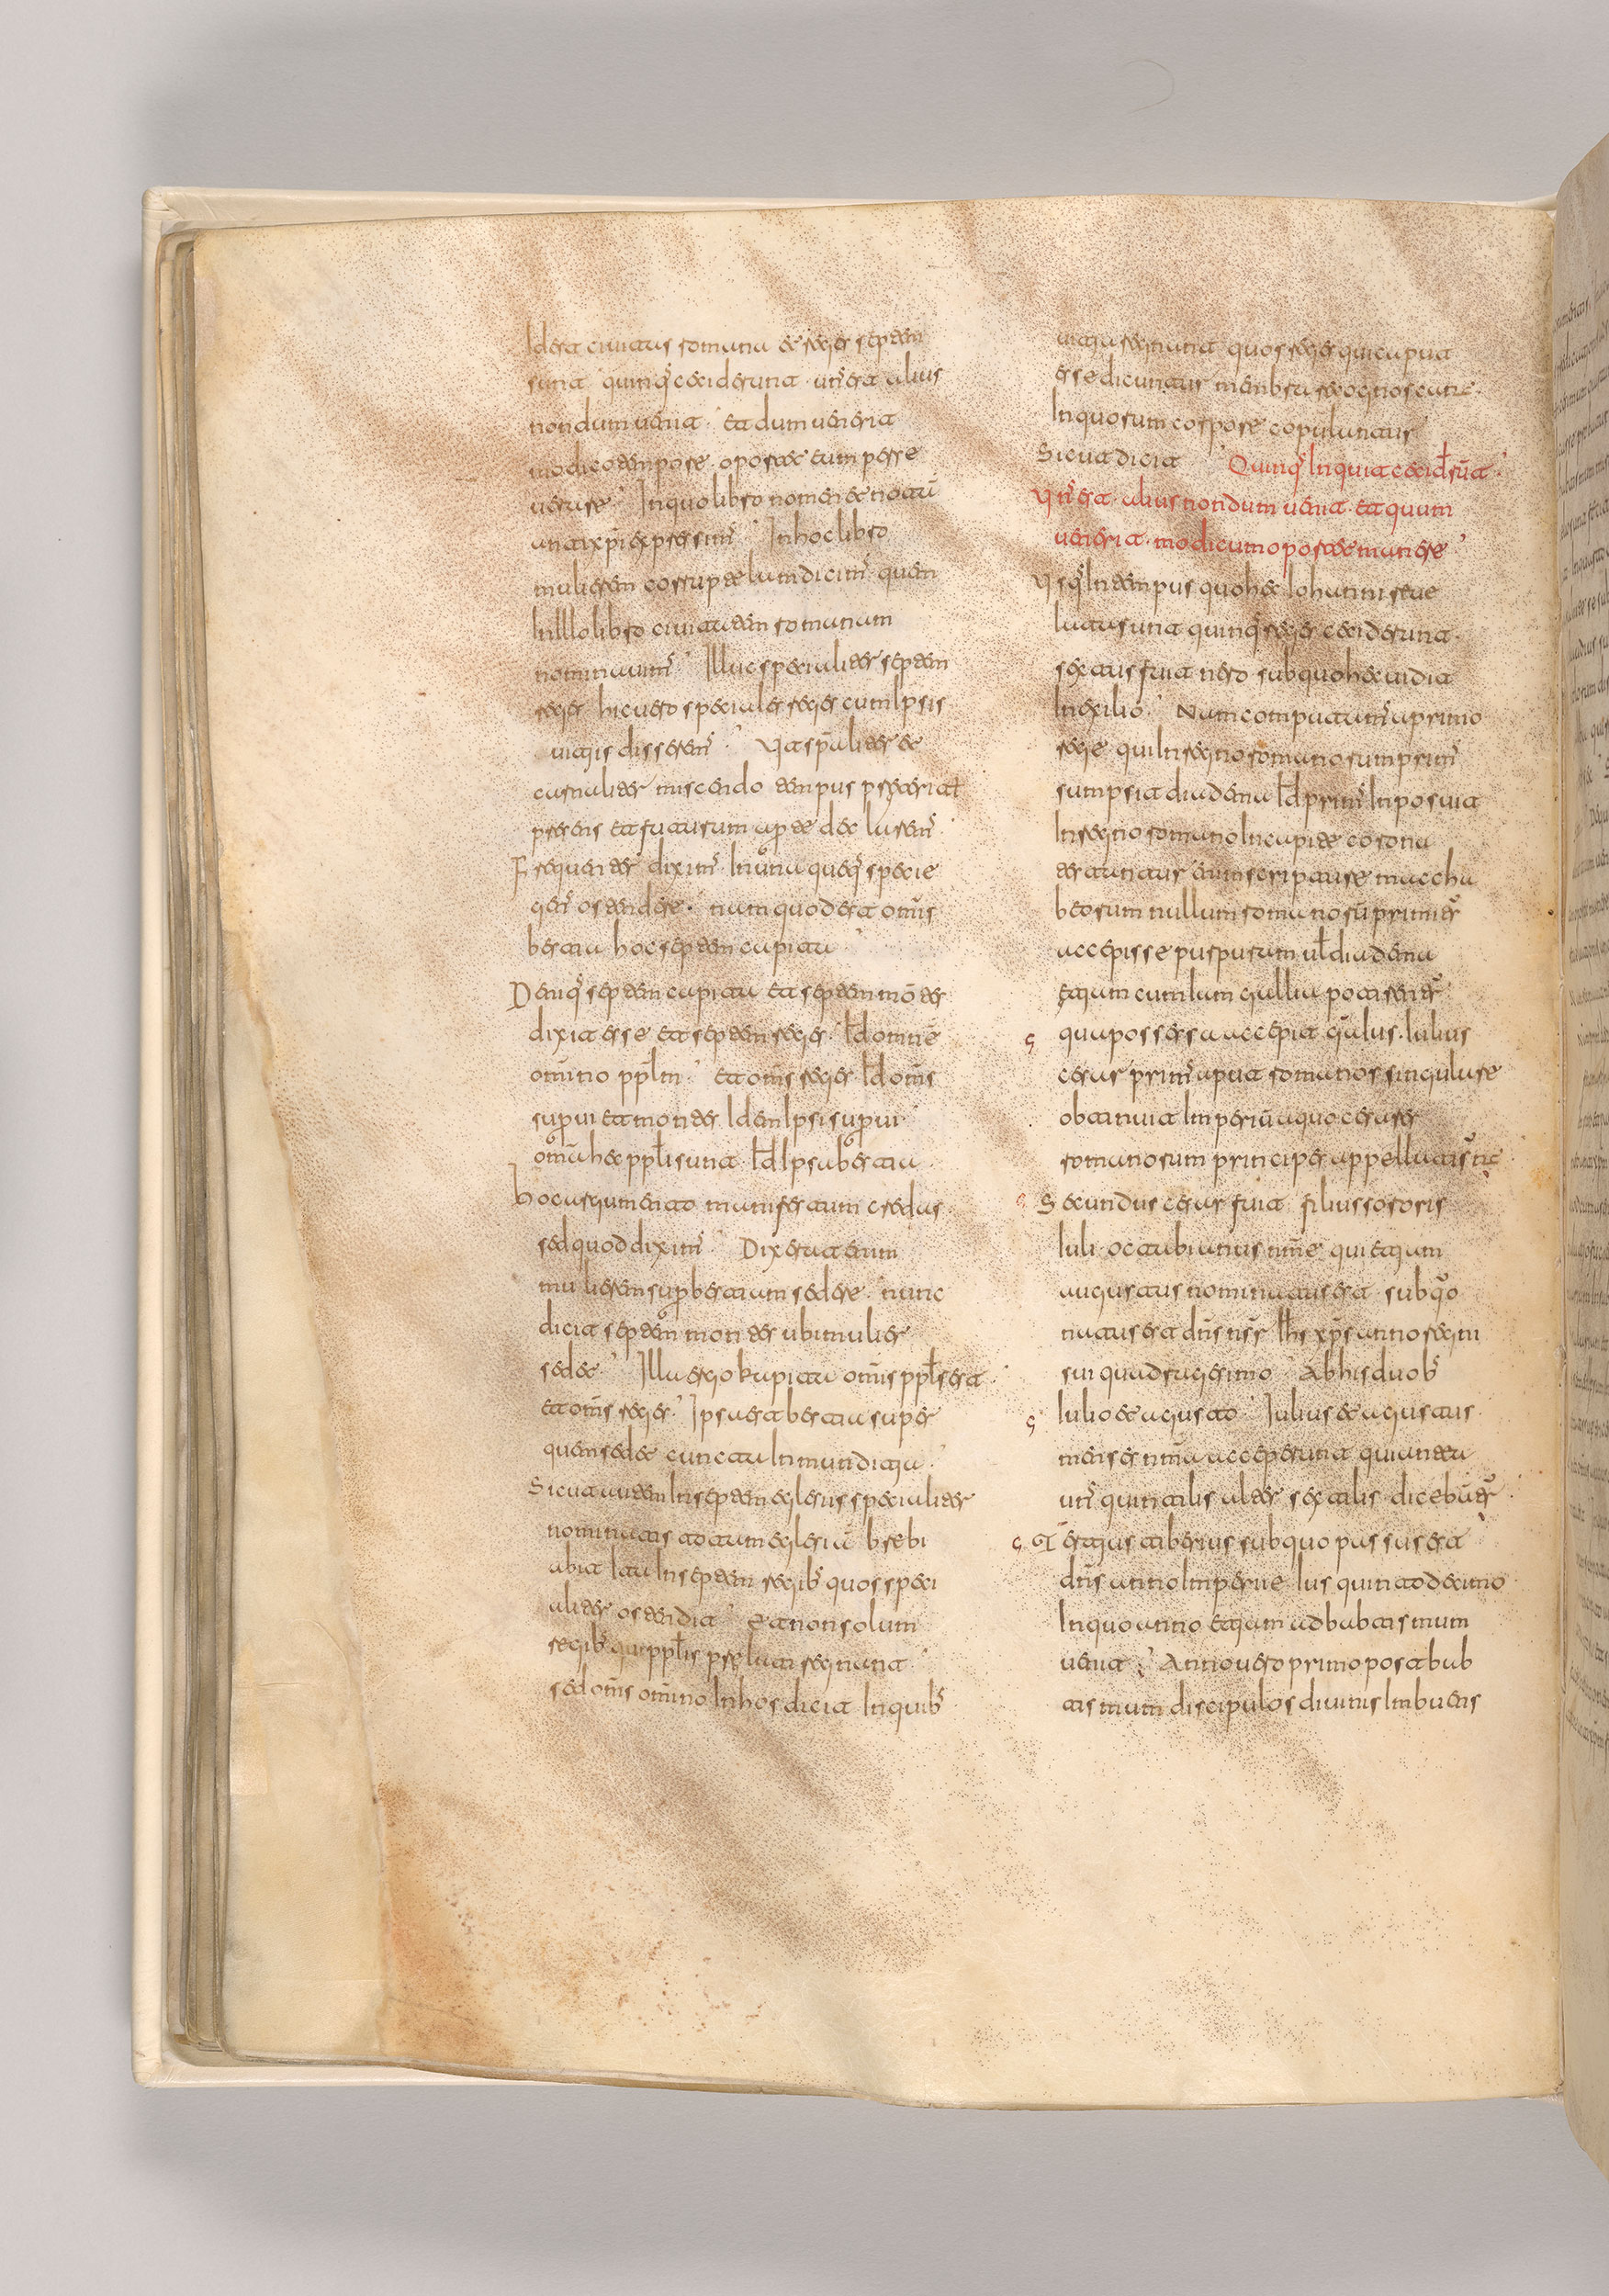 Id est ciuitas romana et reges septem
sunt quinq; ceciderunt · un' est alius
nondum uenit · Et dum uenerit
modico tempore · oportet eum perse
uerare · In quo libro nomen et notā
antixpi expressim' · In hoc libro
mulierem corruptelam dicim' · quem
In Illo libro ciuitatem romanam
nominauim' · Illuc specialiter septem
reges hic uero speciales reges cum Ipsis
magis disserem' · Ut spālīter et
carnaliter miscendo tempus preterit
presens et futurum apte declarem'
Frequenter diximus In una queq; specie
gen' ostendere · nam quod est om̄s
bestia hoc septem capita
Denq; septem capita et septem mōtes
dixit esse et septem reges · Id omnē
om̄ino pplm · et om̄s reges Id om̄s
superui et montes Idem Ipsi superui
om̄a hec ppli sunt · Id Ipsa bestia ·
hoc argumento manifestum credas
sed quod diximus · Dixerat enim
mulierem super bestiam sedere · nunc
dicit septem montes ubi mulier
sedet · Illa ergo kapita om̄is ppls est ·
et om̄s reges · Ipsa est bestia super
quem sedet cuncta In mundi
Sicut autem In septem eglesiis specialiter
nominatis totam eglesiā breui
abit Ita In septem regib' quos speci
aliter ostendit · Et non solum
regib' qui pplis prelati regnant ·
sed om̄s om̄ino In hos dicit In quib'
regnant quos reges qui caput
esse dicuntur membra recognoscunt ·
In quorum corpore copulantur
Sicut dicit · Quinq; Inquit cecid̄r̄t ·
Un' est · alius nondum uenit · et quum
uenerit · modicum oportet manere ·
Usq; In tempus quo hec Iohanni reue
lata sunt quinq; reges ceciderunt ·
sextus fuit nero · sub quo hec uidit
In exilio · Nam computam' a primo
rege qui In regno romanorum prim'
sumpsit diadema Id prim' Inposuit
In regno romano In capite corona
testantur enim scripture maccha
beorum nullum romanorū primit'
accepisse purpuram ul diadema
Etiam cum Iam gallia potiren̄t
qua post ersa accepit galus · Iulius
cesar prim' aput romanos singulare
obtinuit Imperiū a quo cesares
romanorum principes appellati s̄t
Secundus cesar fuit filius sororis
Iuli octabianus nm̄e qui etiam
augustus nominatus est · sub q̊
natus est dn̄s nsr Ihs xps anno regni
sui quadragesimo · Ab his duob'
Iulio et agusto · Iulius et agustus
menses nm̄a acceperunt qui antea
un' quintilis alter sextilis dicebāt ·
Tertius tiberius sub quo passus est
dn̄s anno Imperiie Ius quintodecimo
In quo anno etiam ad babtismum
uenit · Anno uero primo post bab
tismum discipulos diuinis Imbuens